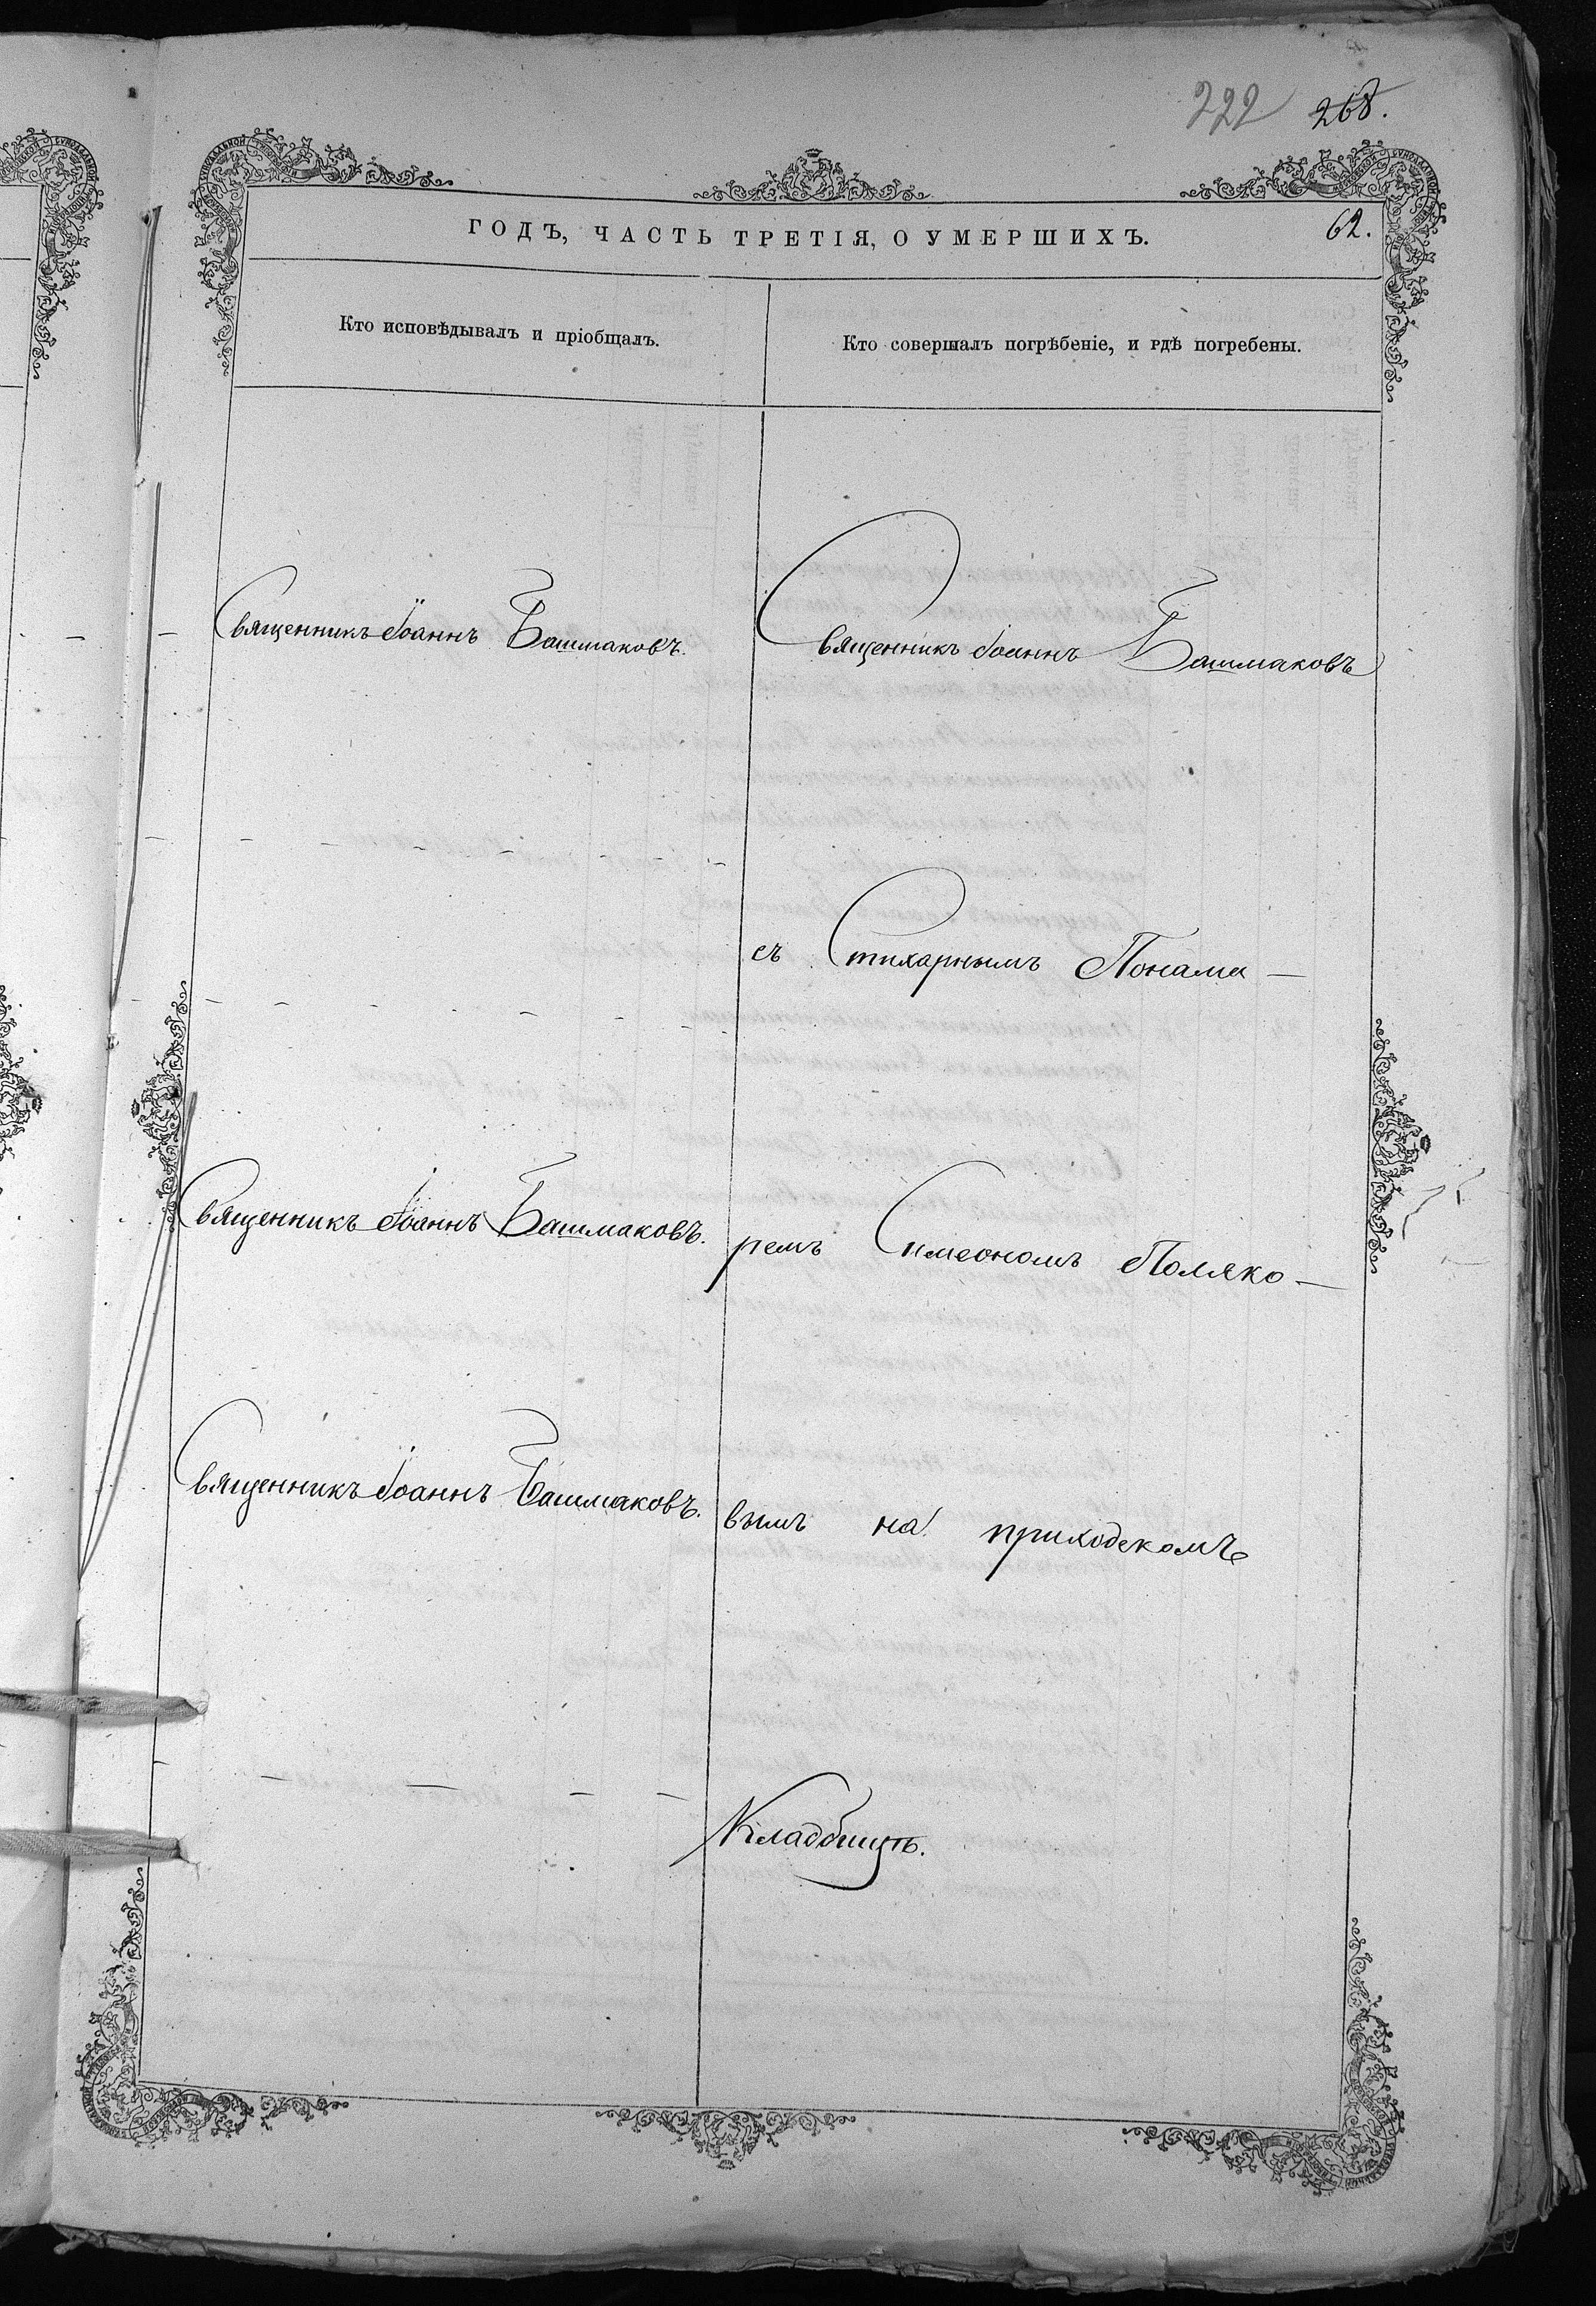 222 268.
ГОДЪ, ЧАСТЬ ТРЕТІЯ, О УМЕРШИХЪ.
62.
Кто исповѣдывалъ и пріобщалъ.
Кто совершалъ погрѣбеніе, и гдѣ погребены.
Священникъ Іоаннъ Башмаковъ.
Священникъ Іоаннъ Башмаковъ
съ Стихарнымъ Понама-
Священникъ Іоаннъ Башмаковъ.
ремъ Симеономъ Поляко-
Священникъ Іоаннъ Башмаковъ.
вымъ на приходскомъ
Кладбищѣ.